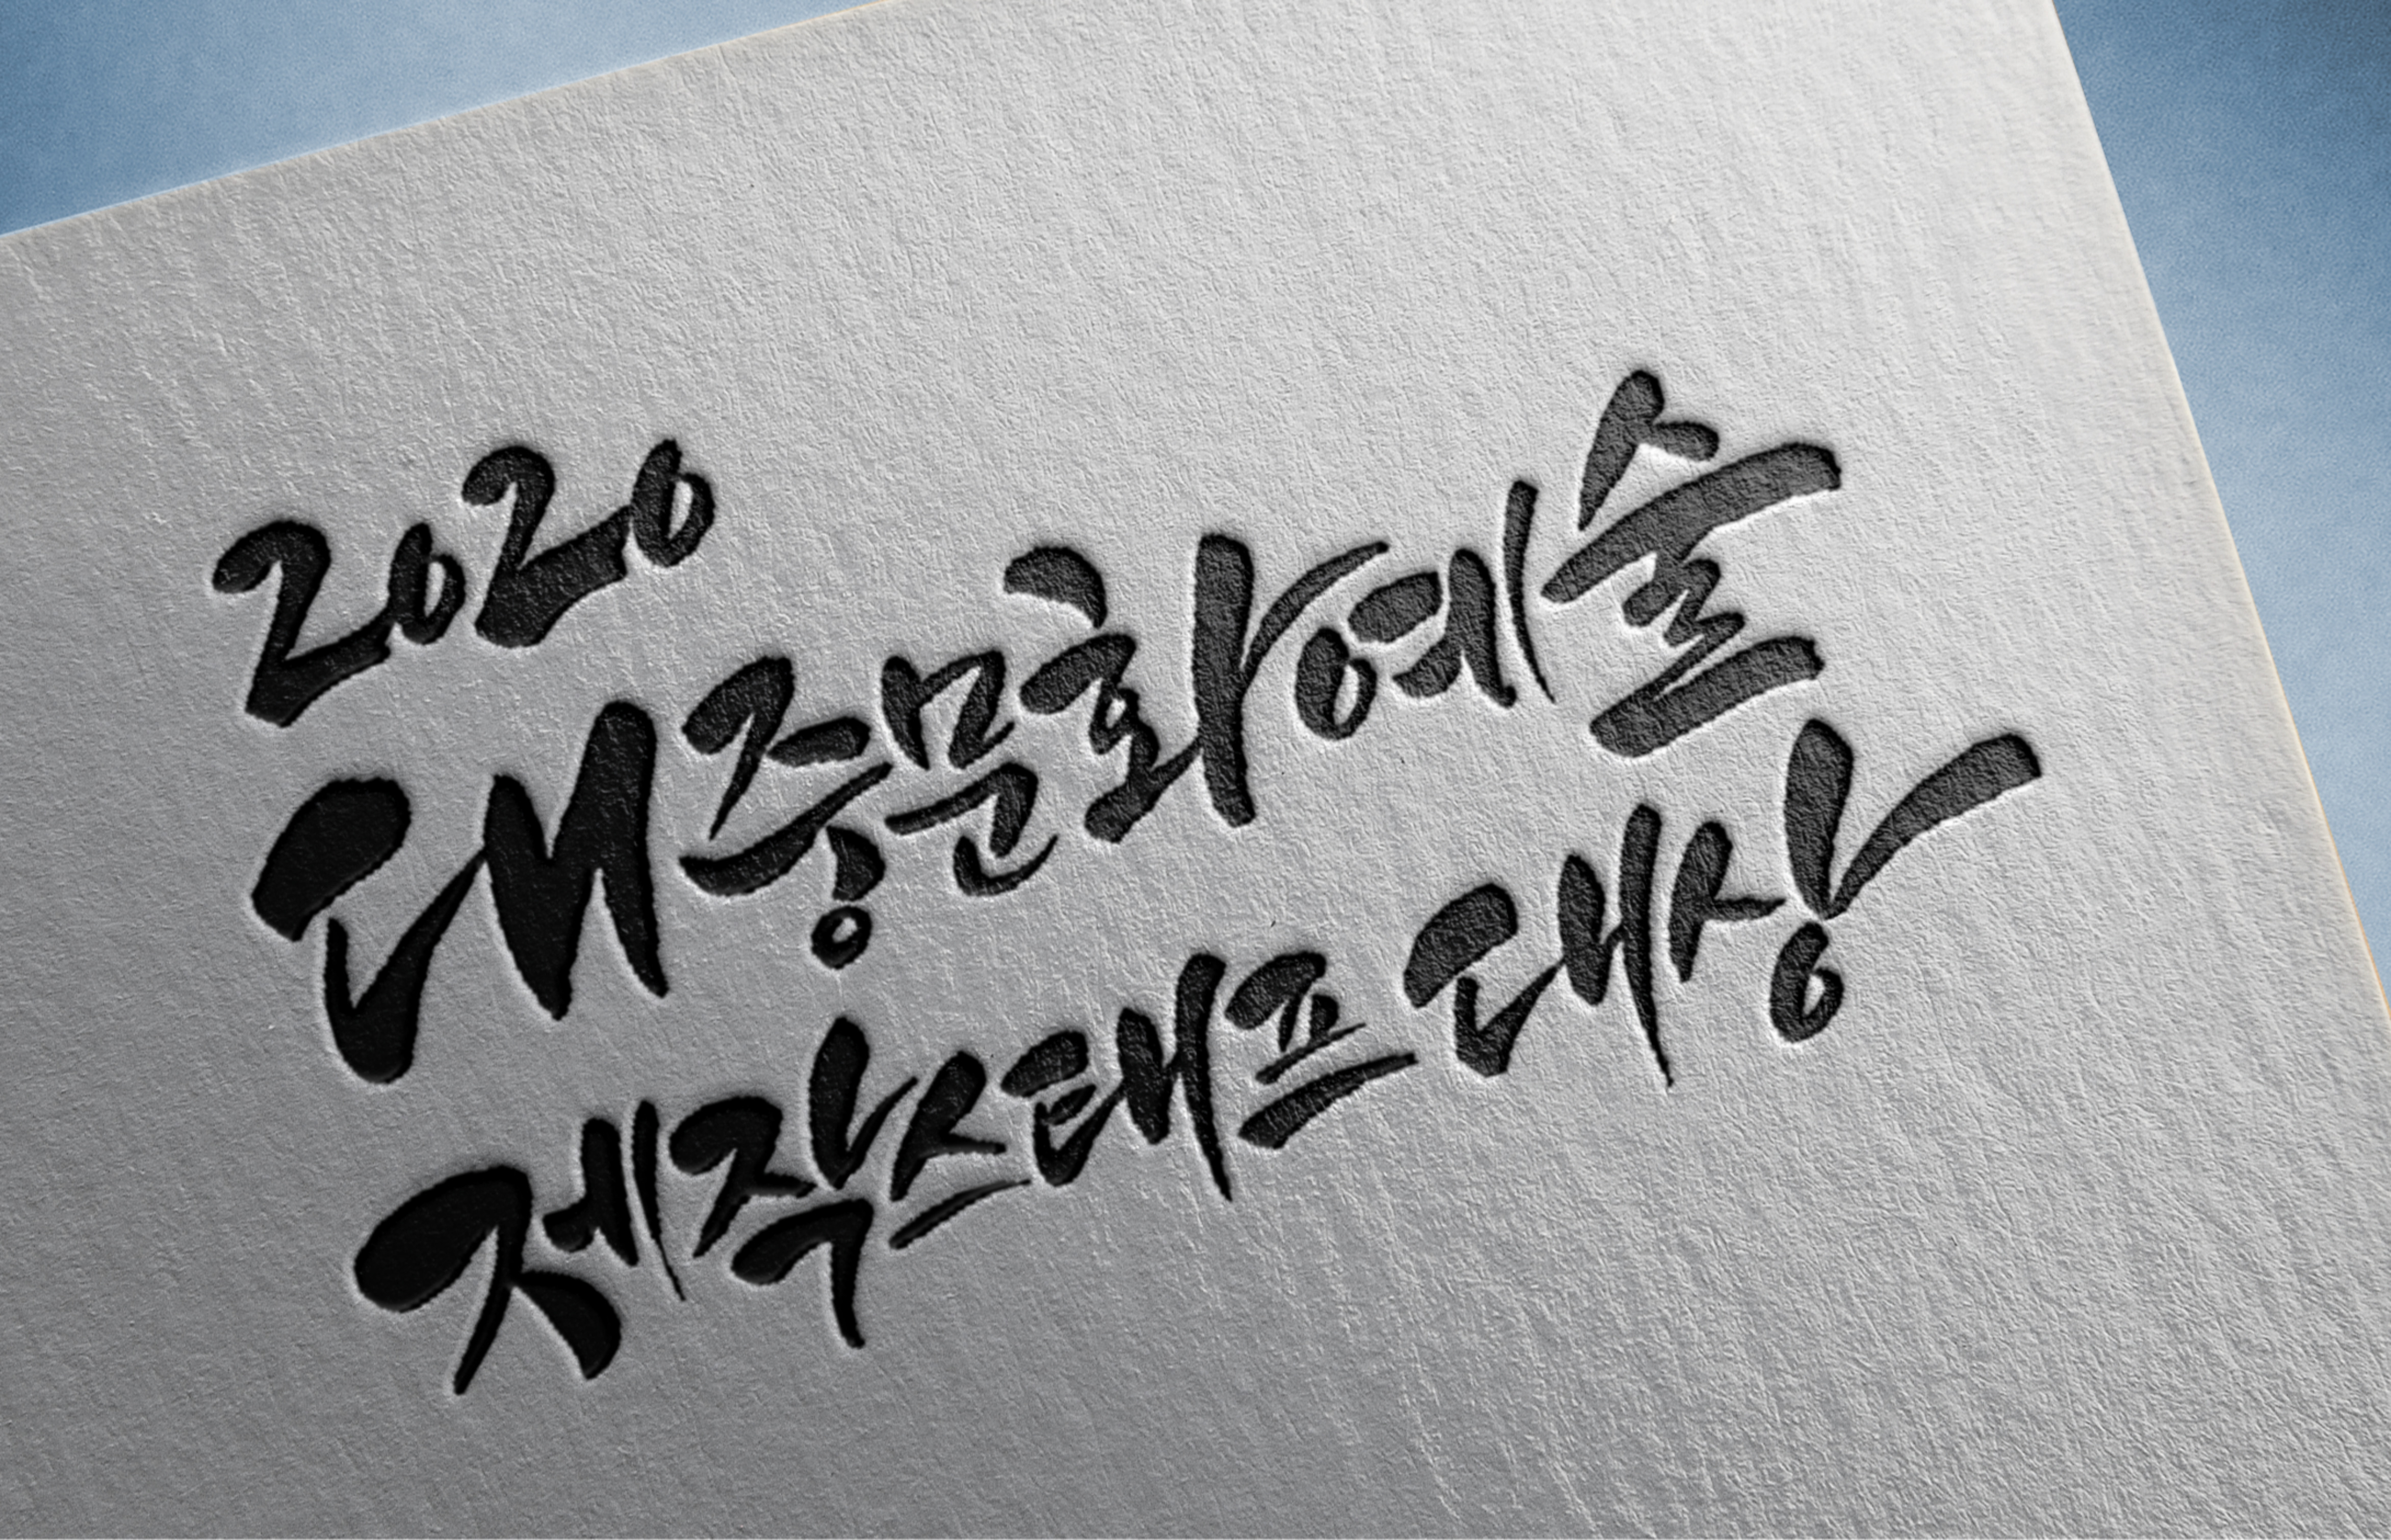 2020
대중문화예술
제작스태프대상